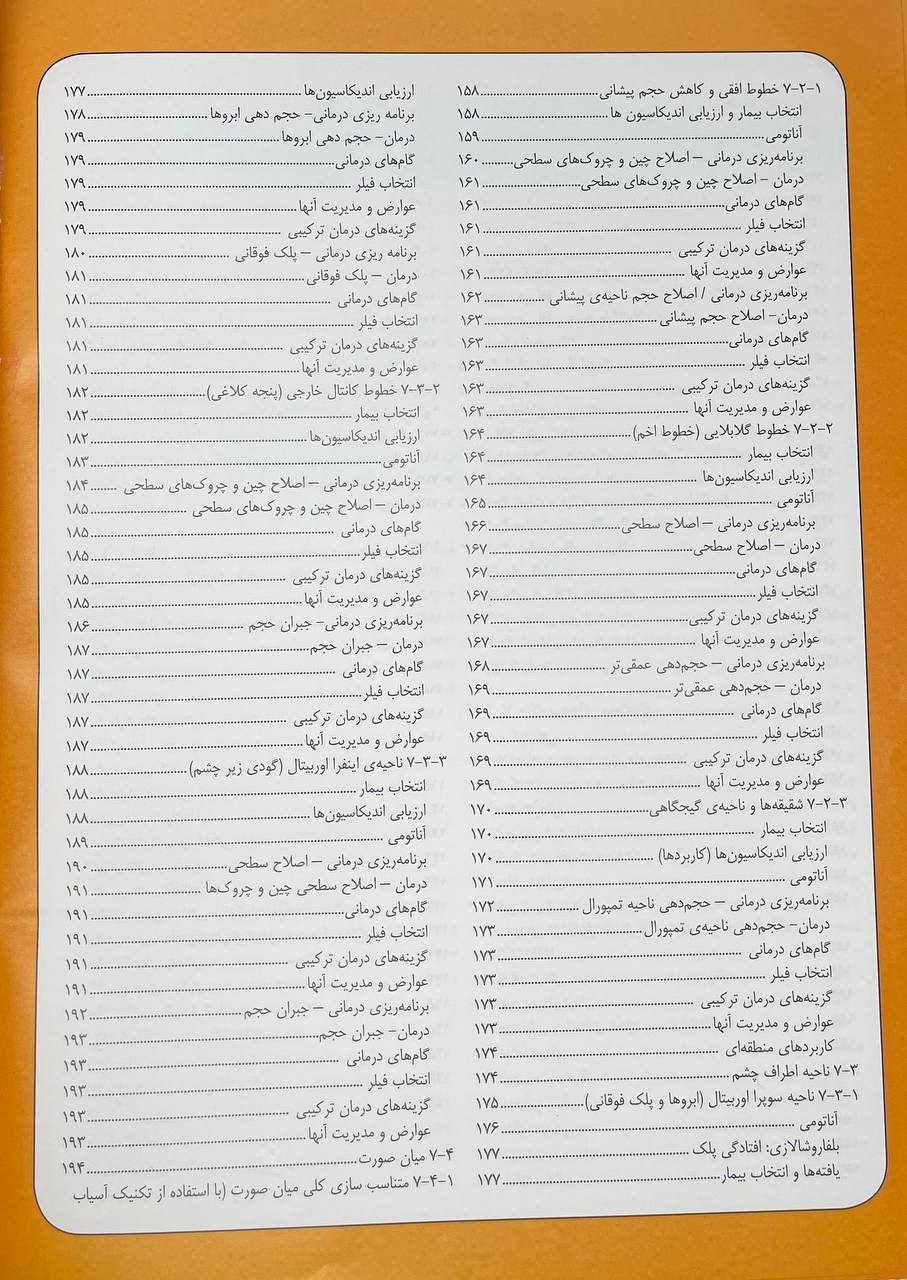 ۷-۲-۱ خطوط افقی و کاهش حجم پیشانی ۱۵۸
انتخاب بیمار و ارزیابی اندیکاسیون ها ۱۵۸
آناتومی ۱۵۹
برنامه‌ریزی درمانی – اصلاح چین و چروک‌های سطحی ۱۶۰
درمان - اصلاح چین و چروک‌های سطحی ۱۶۱
گام‌های درمانی ۱۶۱
انتخاب فیلر ۱۶۱
گزینه‌های درمان ترکیبی ۱۶۱
عوارض و مدیریت آنها ۱۶۱
برنامه‌ریزی درمانی / اصلاح حجم ناحیه‌ی پیشانی ۱۶۲
درمان- اصلاح حجم پیشانی ۱۶۳
گام‌های درمانی ۱۶۳
انتخاب فیلر ۱۶۳
گزینه‌های درمان ترکیبی ۱۶۳
عوارض و مدیریت آنها ۱۶۳
۷-۲-۲ خطوط گلابلایی (خطوط اخم) ۱۶۴
انتخاب بیمار ۱۶۴
ارزیابی اندیکاسیون‌ها ۱۶۴
آناتومی ۱۶۵
برنامه‌ریزی درمانی – اصلاح سطحی ۱۶۶
درمان – اصلاح سطحی ۱۶۷
گام‌های درمانی ۱۶۷
انتخاب فیلر ۱۶۷
گزینه‌های درمان ترکیبی ۱۶۷
عوارض و مدیریت آنها ۱۶۷
برنامه‌ریزی درمانی – حجم‌دهی عمقی‌تر ۱۶۸
درمان – حجم‌دهی عمقی‌تر ۱۶۹
گام‌های درمانی ۱۶۹
انتخاب فیلر ۱۶۹
گزینه‌های درمان ترکیبی ۱۶۹
عوارض و مدیریت آنها ۱۶۹
۷-۲-۳ شقیقه‌ها و ناحیه‌ی گیجگاهی ۱۷۰
انتخاب بیمار ۱۷۰
ارزیابی اندیکاسیون‌ها (کاربردها) ۱۷۰
آناتومی ۱۷۱
برنامه‌ریزی درمانی – حجم‌دهی ناحیه تمپورال ۱۷۲
درمان- حجم‌دهی ناحیه‌ی تمپورال ۱۷۳
گام‌های درمانی ۱۷۳
انتخاب فیلر ۱۷۳
گزینه‌های درمان ترکیبی ۱۷۳
عوارض و مدیریت آنها ۱۷۳
کاربردهای منطقه‌ای ۱۷۴
۷-۳ ناحیه اطراف چشم ۱۷۴
۷-۳-۱ ناحیه سوپرا اوربیتال (ابروها و پلک فوقانی) ۱۷۵
آناتومی ۱۷۶
بلفاروشالازی: افتادگی پلک ۱۷۷
یافته‌ها و انتخاب بیمار ۱۷۷
ارزیابی اندیکاسیون‌ها ۱۷۷
برنامه ریزی درمانی- حجم دهی ابروها ۱۷۸
درمان- حجم دهی ابروها ۱۷۹
گام‌های درمانی ۱۷۹
انتخاب فیلر ۱۷۹
عوارض و مدیریت آنها ۱۷۹
گزینه‌های درمان ترکیبی ۱۷۹
برنامه ریزی درمانی – پلک فوقانی ۱۸۰
درمان – پلک فوقانی ۱۸۱
گام‌های درمانی ۱۸۱
انتخاب فیلر ۱۸۱
گزینه‌های درمان ترکیبی ۱۸۱
عوارض و مدیریت آنها ۱۸۱
۷-۳-۲ خطوط کانتال خارجی (پنجه کلاغی) ۱۸۲
انتخاب بیمار ۱۸۲
ارزیابی اندیکاسیون‌ها ۱۸۲
آناتومی ۱۸۳
برنامه‌ریزی درمانی – اصلاح چین و چروک‌های سطحی ۱۸۴
درمان – اصلاح چین و چروک‌های سطحی ۱۸۵
گام‌های درمانی ۱۸۵
انتخاب فیلر ۱۸۵
گزینه‌های درمان ترکیبی ۱۸۵
عوارض و مدیریت آنها ۱۸۵
برنامه‌ریزی درمانی- جبران حجم ۱۸۶
درمان – جبران حجم ۱۸۷
گام‌های درمانی ۱۸۷
انتخاب فیلر ۱۸۷
گزینه‌های درمان ترکیبی ۱۸۷
عوارض و مدیریت آنها ۱۸۷
۷-۳-۳ ناحیه‌ی اینفرا اوربیتال (گودی زیر چشم) ۱۸۸
انتخاب بیمار ۱۸۸
ارزیابی اندیکاسیون‌ها ۱۸۸
آناتومی ۱۸۹
برنامه‌ریزی درمانی – اصلاح سطحی ۱۹۰
درمان – اصلاح سطحی چین و چروک‌ها ۱۹۱
گام‌های درمانی ۱۹۱
انتخاب فیلر ۱۹۱
گزینه‌های درمان ترکیبی ۱۹۱
عوارض و مدیریت آنها ۱۹۱
برنامه‌ریزی درمانی – جبران حجم ۱۹۲
درمان- جبران حجم ۱۹۳
گام‌های درمانی ۱۹۳
انتخاب فیلر ۱۹۳
گزینه‌های درمان ترکیبی ۱۹۳
عوارض و مدیریت آنها ۱۹۳
۷-۴ میان صورت ۱۹۴
۷-۴-۱ متناسب سازی کلی میان صورت (با استفاده از تکنیک آسیاب